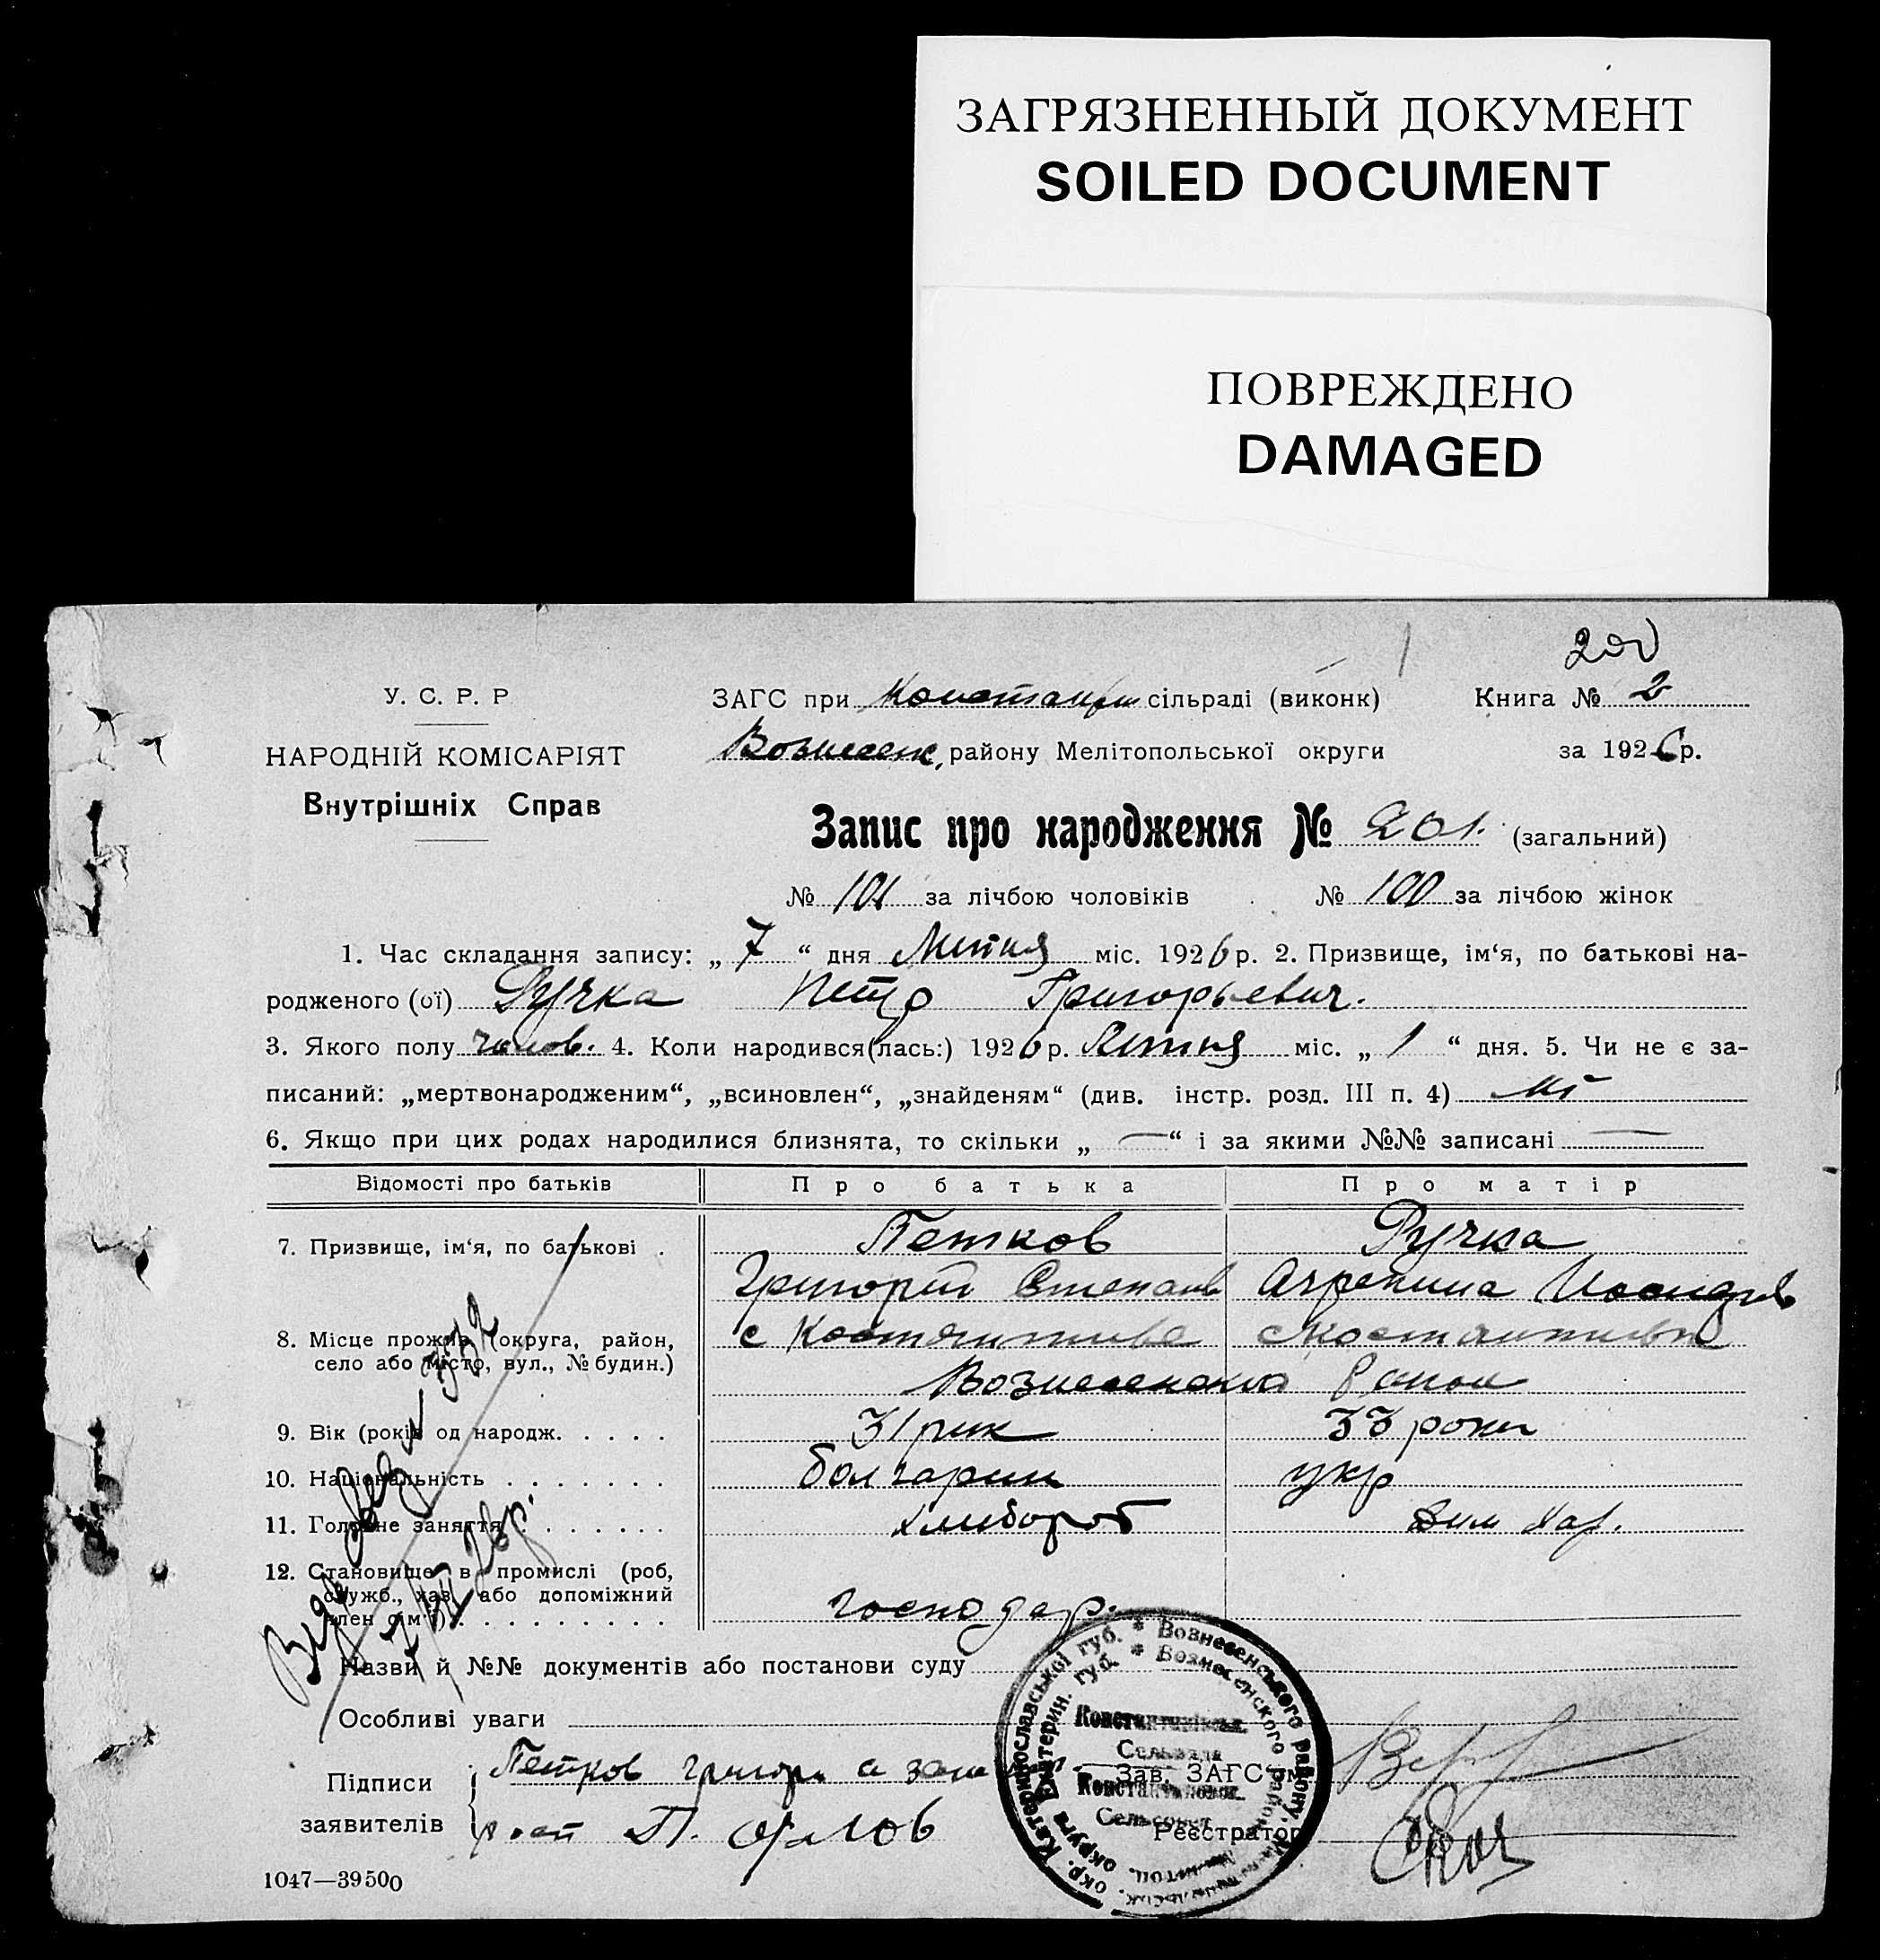 ЗАГРЯЗНЕННЫЙ ДОКУМЕНТ
SOILED DOCUMENT
ПОВРЕЖДЕНО
DAMAGED
200
У. С. Р. Р
НАРОДНІЙ КОМІСАРІЯТ
Внутрішніх Справ
ЗАГС при сільраді (виконк) Книга № 2
Вознесенс, району Мелітопольської округи за 1926 р.
Запис про народження № 201. (загальний)
№ 101 за лічбою чоловіків № 100 за лічбою жінок
1. Час складання запису: „ 7 “ дня Липня міс. 1926 р. 2. Призвище, ім‘я, по батькові на-
родженого (ої) Ручка Петро Григорьевич.
3. Якого полу чолов. 4. Коли народився(лась:) 1926 р. Липня міс. „ 1 “ дня. 5. Чи не є за-
писаний: „мертвонародженим“, „всиновлен“, „знайденям“ (див. інстр. розд. III п. 4) ні
6. Якщо при цих родах народилися близнята, то скільки „ — “ і за якими №№ записані —
Відомості про батьків Про батька Про матір
7. Призвище, ім‘я, по батькові . Петков Ручка
Григорий Степанов
8. Місце прожив. (округа, район, с
село або місто, вул., № будин.)
9. Вік (років од народж. . . . . 31 рик 33 роки
10. Національність . . . . . . . болгарин укр
11. Головне заняття . . . . . . хлибороб
12. Становище в промислі (роб, служб., хаз. або допоміжний член сім‘ї) . . . . . . . . . господар.
Назви й №№ документів або постанови суду
Особливі уваги
Підписи заявителів Петков
П. Орлов
Зав. ЗАГС‘ом
Реєстратор
Катеринославської губ. * Вознесенського району,
губ. * Вознесенского
Сельрада
Сельсовет
1047—39500